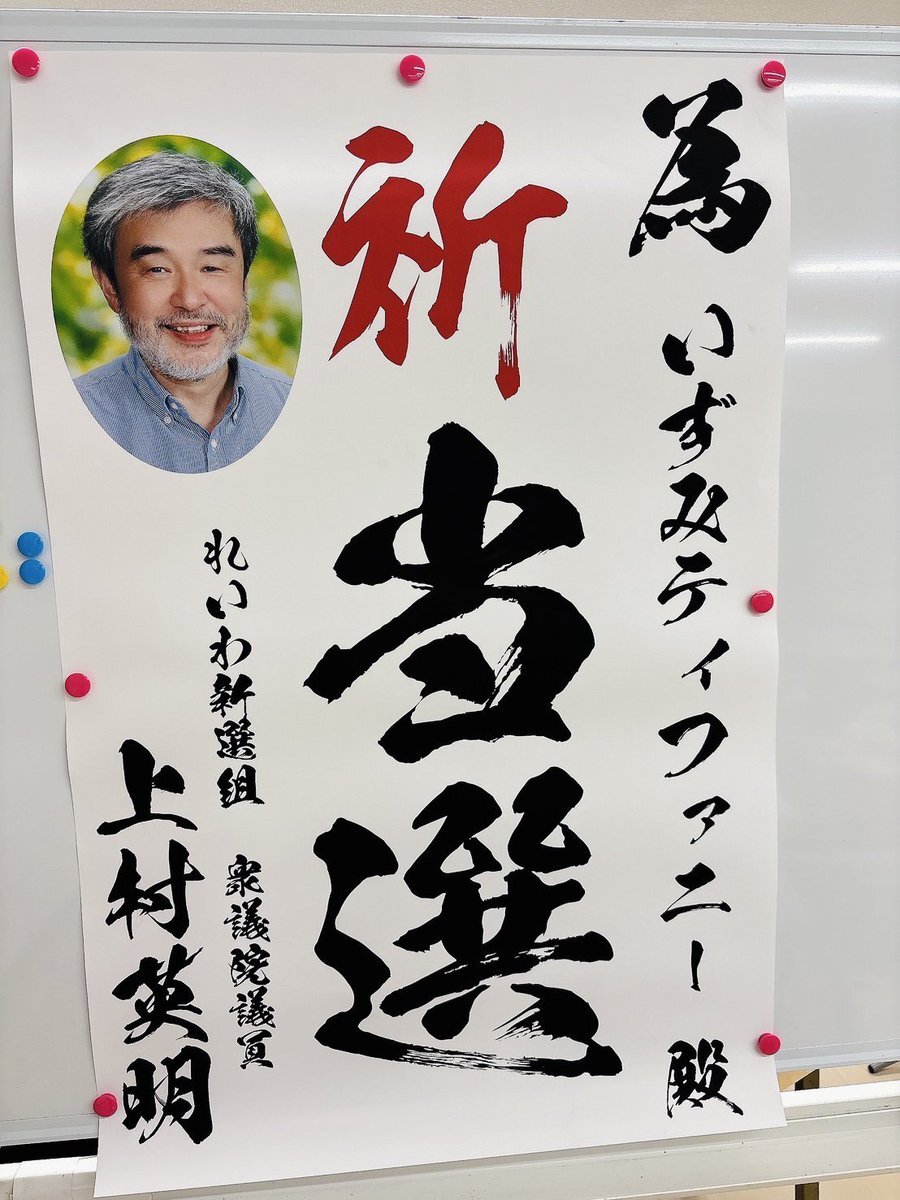 為 いずみティファニー 殿
祈当選
れいわ新選組 衆議院議員
上村英明